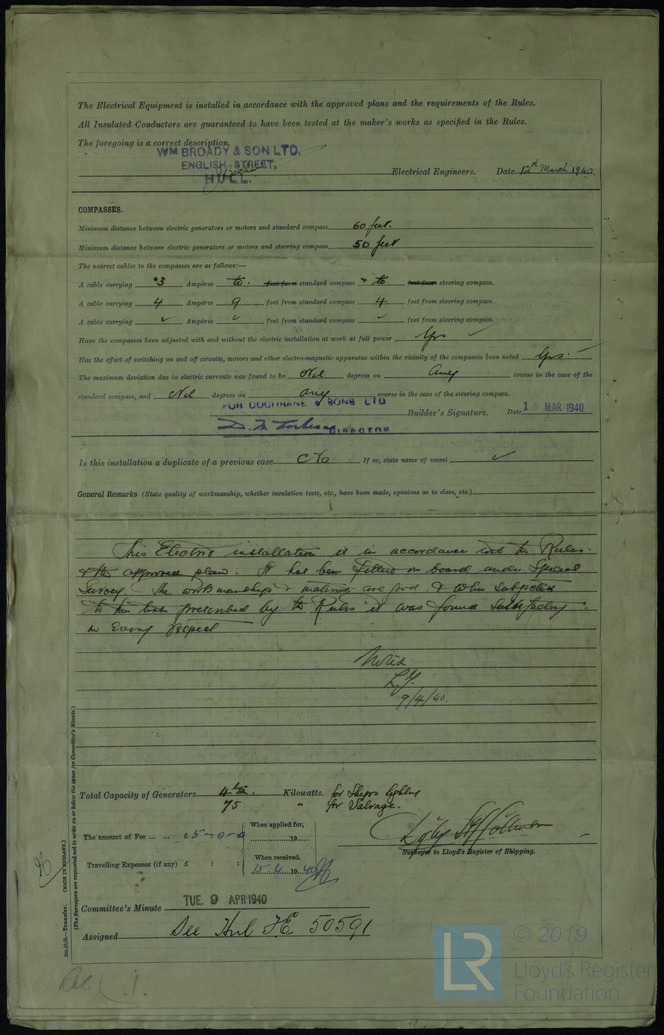 The Electrical Equipment is installed in accordance with the approved plans and the requirements of the Rules.
All Insulated Conductors are guaranteed to have been tested at the maker's works as specified in the Rules.
The foregoing is a correct description.
WM BROADY & SON LTD.
ENGLISH STREET,
HULL.
Electrical Engineers. Date 12th March 1940.
COMPASSES.
Minimum distance between electric generators or motors and standard compass 60 feet.
Minimum distance between electric generators or motors and steering compass 50 feet
The nearest cables to the compasses are as follows:—
A cable carrying .3 Ampères to feet from standard compass + to feet from steering compass.
A cable carrying 4 Ampères 9 feet from standard compass 4 feet from steering compass.
A cable carrying ✓ Ampères ✓ feet from standard compass ✓ feet from steering compass.
Have the compasses been adjusted with and without the electric installation at work at full power Yes ✓
Has the effect of switching on and off circuits, motors and other electro-magnetic apparatus within the vicinity of the compasses been noted Yes.
The maximum deviation due to electric currents was found to be Nil degrees on Any course in the case of the
standard compass, and Nil degrees on any course in the case of the steering compass.
FOR COCHRANE & SONS LTD
DIRECTOR
Builder's Signature. Date 1 MAR 1940
Is this installation a duplicate of a previous case No If so, state name of vessel ✓
General Remarks (State quality of workmanship, whether insulation tests, etc., have been made, opinions as to class, etc.)
This Electric installation is in accordance with the Rules
& the approved plan. It has been fitted on board under Special
Survey. The workmanship & material are good & when subjected
to the tests prescribed by the Rules it was found satisfactory
in every respect
Noted
9/4/40.
Total Capacity of Generators 4½ Kilowatts. for Ships lighting
75 " for Salvage.
The amount of Fee ... ... £5-0-0
When applied for,
19
Travelling Expenses (if any) £ : :
When received,
15.4.1940
Surveyor to Lloyd's Register of Shipping.
Committee's Minute TUE. 9 APR 1940
Assigned See Hul F.E. 50591
—Transfer. (MADE IN ENGLAND.)
(The Surveyors are requested not to write on or below the space for Committee's Minute.)
LR
© 2019
Lloyd's Register
Foundation